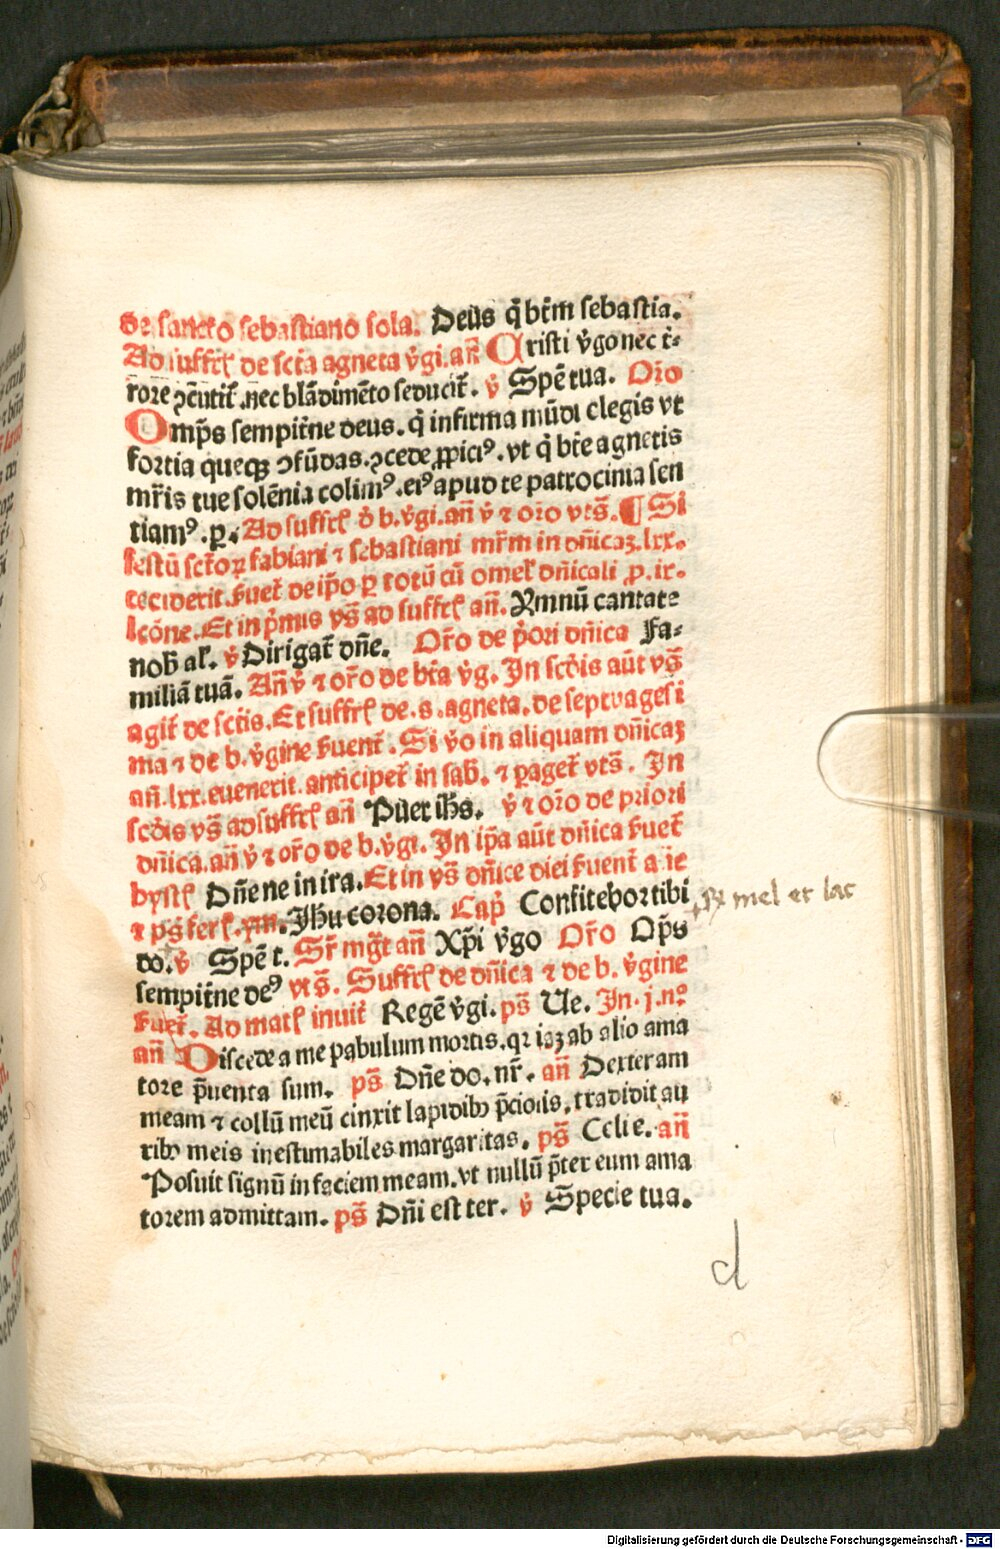 de sancto sebastiano sola. Deus q̄ btm̄ sebastia.
Ad suffrꝭ de scta agneta v̄gi. an̄ Cristi v̄go nec t̄-
rore ꝯcutit᷑. nec blādimēto seducit᷑. v̄ Spē tua. Oro
Omp̄s sempit̄ne deus. q̄ infirma mūdi elegis vt
fortia queqꝫ ꝯfūdas. ꝯcede ꝓpiciꝰ. vt q̄ bte agnetis
mr̄is tue solēnia colimꝰ. eiꝰ apud te patrocinia sen
tiamꝰ. ꝑ. Ad suffrꝭ d̄ b. v̄gi. an̄ v̄ ⁊ oro vts̄. ¶ Si
festū sctoꝝ fabiani ⁊ sebastiani mr̄m in dn̄icaꝫ. lxx.
ceciderit. fiuet᷑ de ip̄o ꝑ totū cū omeꝭ dn̄icali ꝓ. ix.
lcōne. Et in pͥmis vs̄ ad suffrꝭ an̄. Ymnū cantate
nob̄ al'. v̄ Dirigat᷑ dn̄e. Oro de pͥori dn̄ica Fa-
miliā tuā. An̄ v̄ ⁊ oro de bta v̄g. In scdis aūt vs̄
agit᷑ de sctis. Et suffrꝭ de. s. agneta. de septuagesi
ma ⁊ de b. v̄gine fiuent᷑. Si v̄o in aliquam dn̄icaꝫ
an̄. lxx. euenerit. anticipet᷑ in sab̄. ⁊ ꝑaget᷑ vts̄. In
scdis vs̄ ad suffrꝭ an̄ Puer ihs̄. v̄ ⁊ oro de priori
dn̄ica. an̄ v̄ ⁊ oro de b. v̄gi. In ip̄a aūt dn̄ica fiuet᷑
hystꝭ Dn̄e ne in ira. Et in vs̄ dn̄ice diei fiuent᷑ a ie
⁊ ps̄ ferꝭ. Jhu corona. Cap̄ Confitebor tibi
℟ mel et lac
do. v̄ Spē t. Sr̄ mḡt an̄ Xp̄i v̄go Oro Op̄s
sempit̄ne deꝰ vts̄. Suffrꝭ de dn̄ica ⁊ de b. v̄gine
fiuet᷑. Ad matꝭ inuit᷑ Regē v̄gi. ps̄ Ue. In. j. nͦ
an̄ Discede a me pabulum mortis. qꝛ iaꝫ ab alio ama
tore p̄uenta sum. ps̄ Dn̄e do. nr̄. an̄ Dexteram
meam ⁊ collū meū cinxit lapidibꝰ p̄ciosis. tradidit au
ribꝰ meis inestimabiles margaritas. ps̄ Celi e. an̄
Posuit signū in faciem meam. vt nullū p̄ter eum ama
torem admittam. ps̄ Dn̄i est ter. v̄ Specie tua.
d
Digitalisierung gefördert durch die Deutsche Forschungsgemeinschaft - DFG